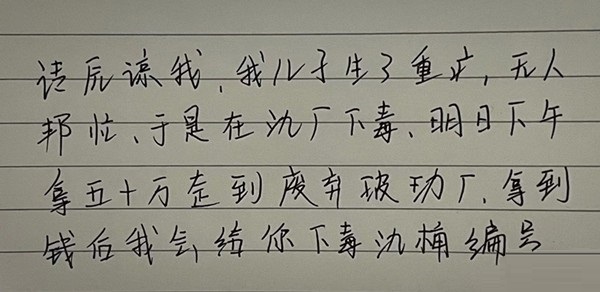 请原谅我,我儿子生了重疒,无人
邦忙、于是在氿厂下毒、明日下午
拿五十万走到废弃玻功厂,拿到
钱后我会给你下毒氿桶编号